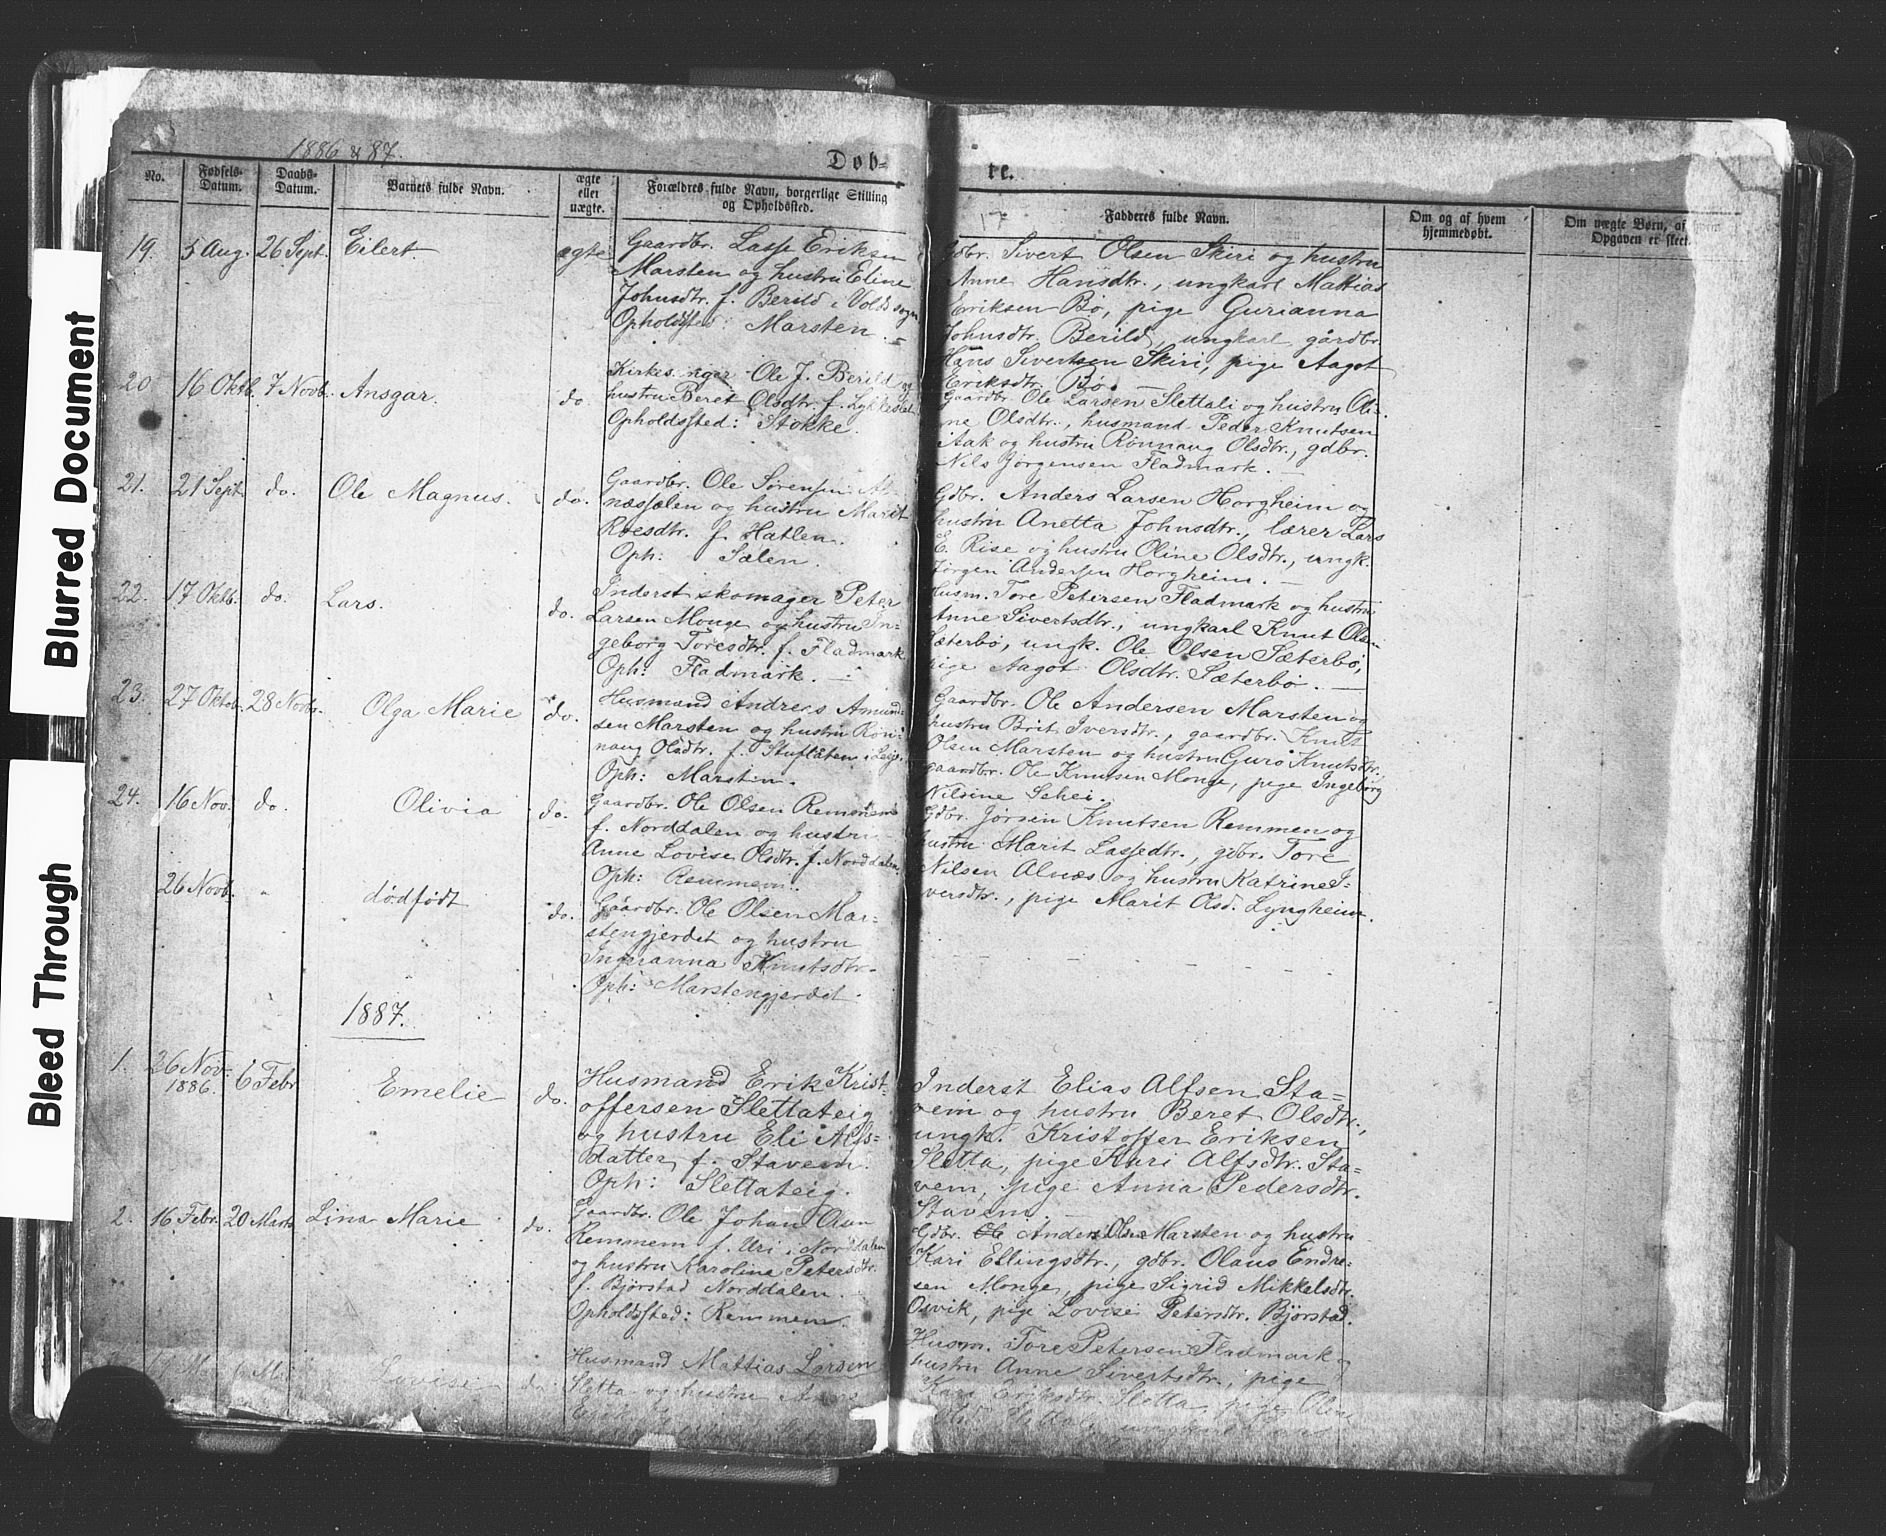 Blurred Document
Bleed Through
1886 & 87.
Døb-
re.
17
No.
Fødsels-
Datum.
Daabs-
Datum.
Barnets fulde Navn.
ægte
eller
uægte.
Forældres fulde Navn, borgerlige Stilling
og Opholdssted.
Fadderes fulde Navn.
Om og af hvem
hjemmedøbt.
Om uægte Børn, af hvem
Opgaven er skeet.
19. 5 Aug. 26 Sept. Eilert. ægte
Gaardbr. Lasse Eriksen
Marsten og hustru Eline
Johnsdtr. f. Berild i Volds sogn
Opholdssted: Marsten.
Gdbr. Sivert Olsen Skiri og hustru
Anne Hansdtr., ungkarl Mattias
Eriksen Bö, pige Gurianna
Johnsdtr. Berild, ungkarl gårdbr.
Hans Sivertsen Skiri, pige Aagot
Eriksdtr. Bö. —
20 16 Oktb. 7 Novb. Ansgar. do.
Kirkesanger Ole J. Berild og
hustru Beret Olsdtr. f. Lykkeslet
Opholdssted: Stokke.
Gaardbr. Ole Larsen Slettali og hustru Oli-
ne Olsdtr., husmand Peder Knutsen
Aak og hustru Rønnaug Olsdtr., gdbr.
Nils Jørgensen Fladmark. —
21. 21 Sept. do. Ole Magnus. do.
Gaardbr. Ole Sørensen Al-
næssælen og hustru Marit
Roesdtr. f. Hatlen.
Oph: Sælen.
Gdbr. Anders Larsen Horgheim og
hustru Anetta Johnsdtr., lærer Lars
E. Rise og hustru Oline Olsdtr., ungk.
Jørgen Andersen Horgheim. —
22. 17 Oktb. do. Lars. do.
Inderst skomager Peter
Larsen Monge og hustru In-
geborg Toresdtr. f. Fladmark
Oph: Fladmark. —
Husm. Tore Petersen Fladmark og hustru
Anne Sivertsdtr., ungkarl Knut Olsen
Sæterbø, ungk. Ole Olsen Sæterbø,
pige Aagot Olsdtr. Sæterbø. —
23. 27 Oktob. 28 Novbr. Olga Marie do.
Husmand Andreas Amund-
sen Marsten og hustru Røn-
naug Olsdtr. f. Stuflåten i Lesje.
Oph: Marsten.
Gaardbr. Ole Andersen Marsten og
hustru Brit Iversdtr., gaardbr. Knut
Olsen Marsten og hustru Guro Knutsdtr.,
gaardbr. Ole Knutsen Monge, pige Ingeborg
Nilsine Schei.
24. 16 Nov. do. Olivia do.
Gaardbr. Ole Olsen Remmem
f. Norddalen og hustru
Anne Lovise Olsdtr. f. Norddalen
Oph: Remmem.
Gdbr. Jørsin Knutsen Remmen og
hustru Marit Lassedtr., gdbr. Tore
Nilsen Alnæs og hustru Katrine I-
versdtr., pige Marit Olsd. Lyngheim.
26 Novb. dødfødt do.
Gaardbr. Ole Olsen Mar-
stengjerdet og hustru
Ingeranna Knutsdtr.
Oph: Marstengjerdet.
1887.
1. 26 Nov. 6 Febr Emelie do.
1886.
Husmand Erik Krist-
offersen Slettateig
og hustru Eli Alfs-
datter f. Stavem.
Oph: Slettateig.
Inderst Elias Alfsen Sta-
vem og hustru Beret Olsdtr.,
ungk. Kristoffer Eriksen
Sletta, pige Kari Alfsdtr. Sta-
vem, pige Anna Pedersdtr.
Stavem. —
2. 16 Febr. 20 Marts Lina Marie do.
Gaardbr. Ole Johan Olsen
Remmem f. Uri i Norddalen
og hustru Karolina Petersdtr.
f. Bjørstad Norddalen. —
Opholdssted: Remmem.
Gdbr. Ole Anders Olsen Marsten og hustru
Kari Ellingsdtr., gdbr. Olaus Endre-
sen Monge, pige Sigrid Mikkelsdtr.
Osvik, pige Lovise Petersdtr. Bjørstad.
Lovise do.
Husmand Mattias Larsen
Sletta og hustru
Husm. Tore Petersen Fladmark og
hustru Anne Sivertsdtr., pige
Kari Eriksdtr. Sletta, pige Oline